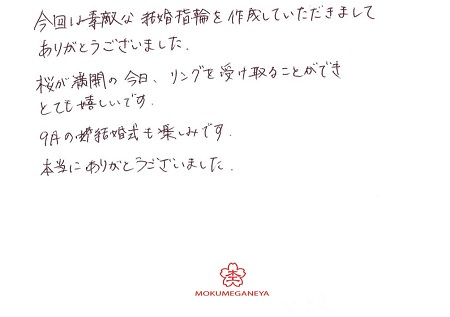 今回は素敵な結婚指輪を作成していただきまして
ありがとうございました.
桜が満開の今日、リングを受け取ることができ
とても嬉しいです.
9月の結婚式も楽しみです.
本当にありがとうございました.
MOKUMEGANEYA